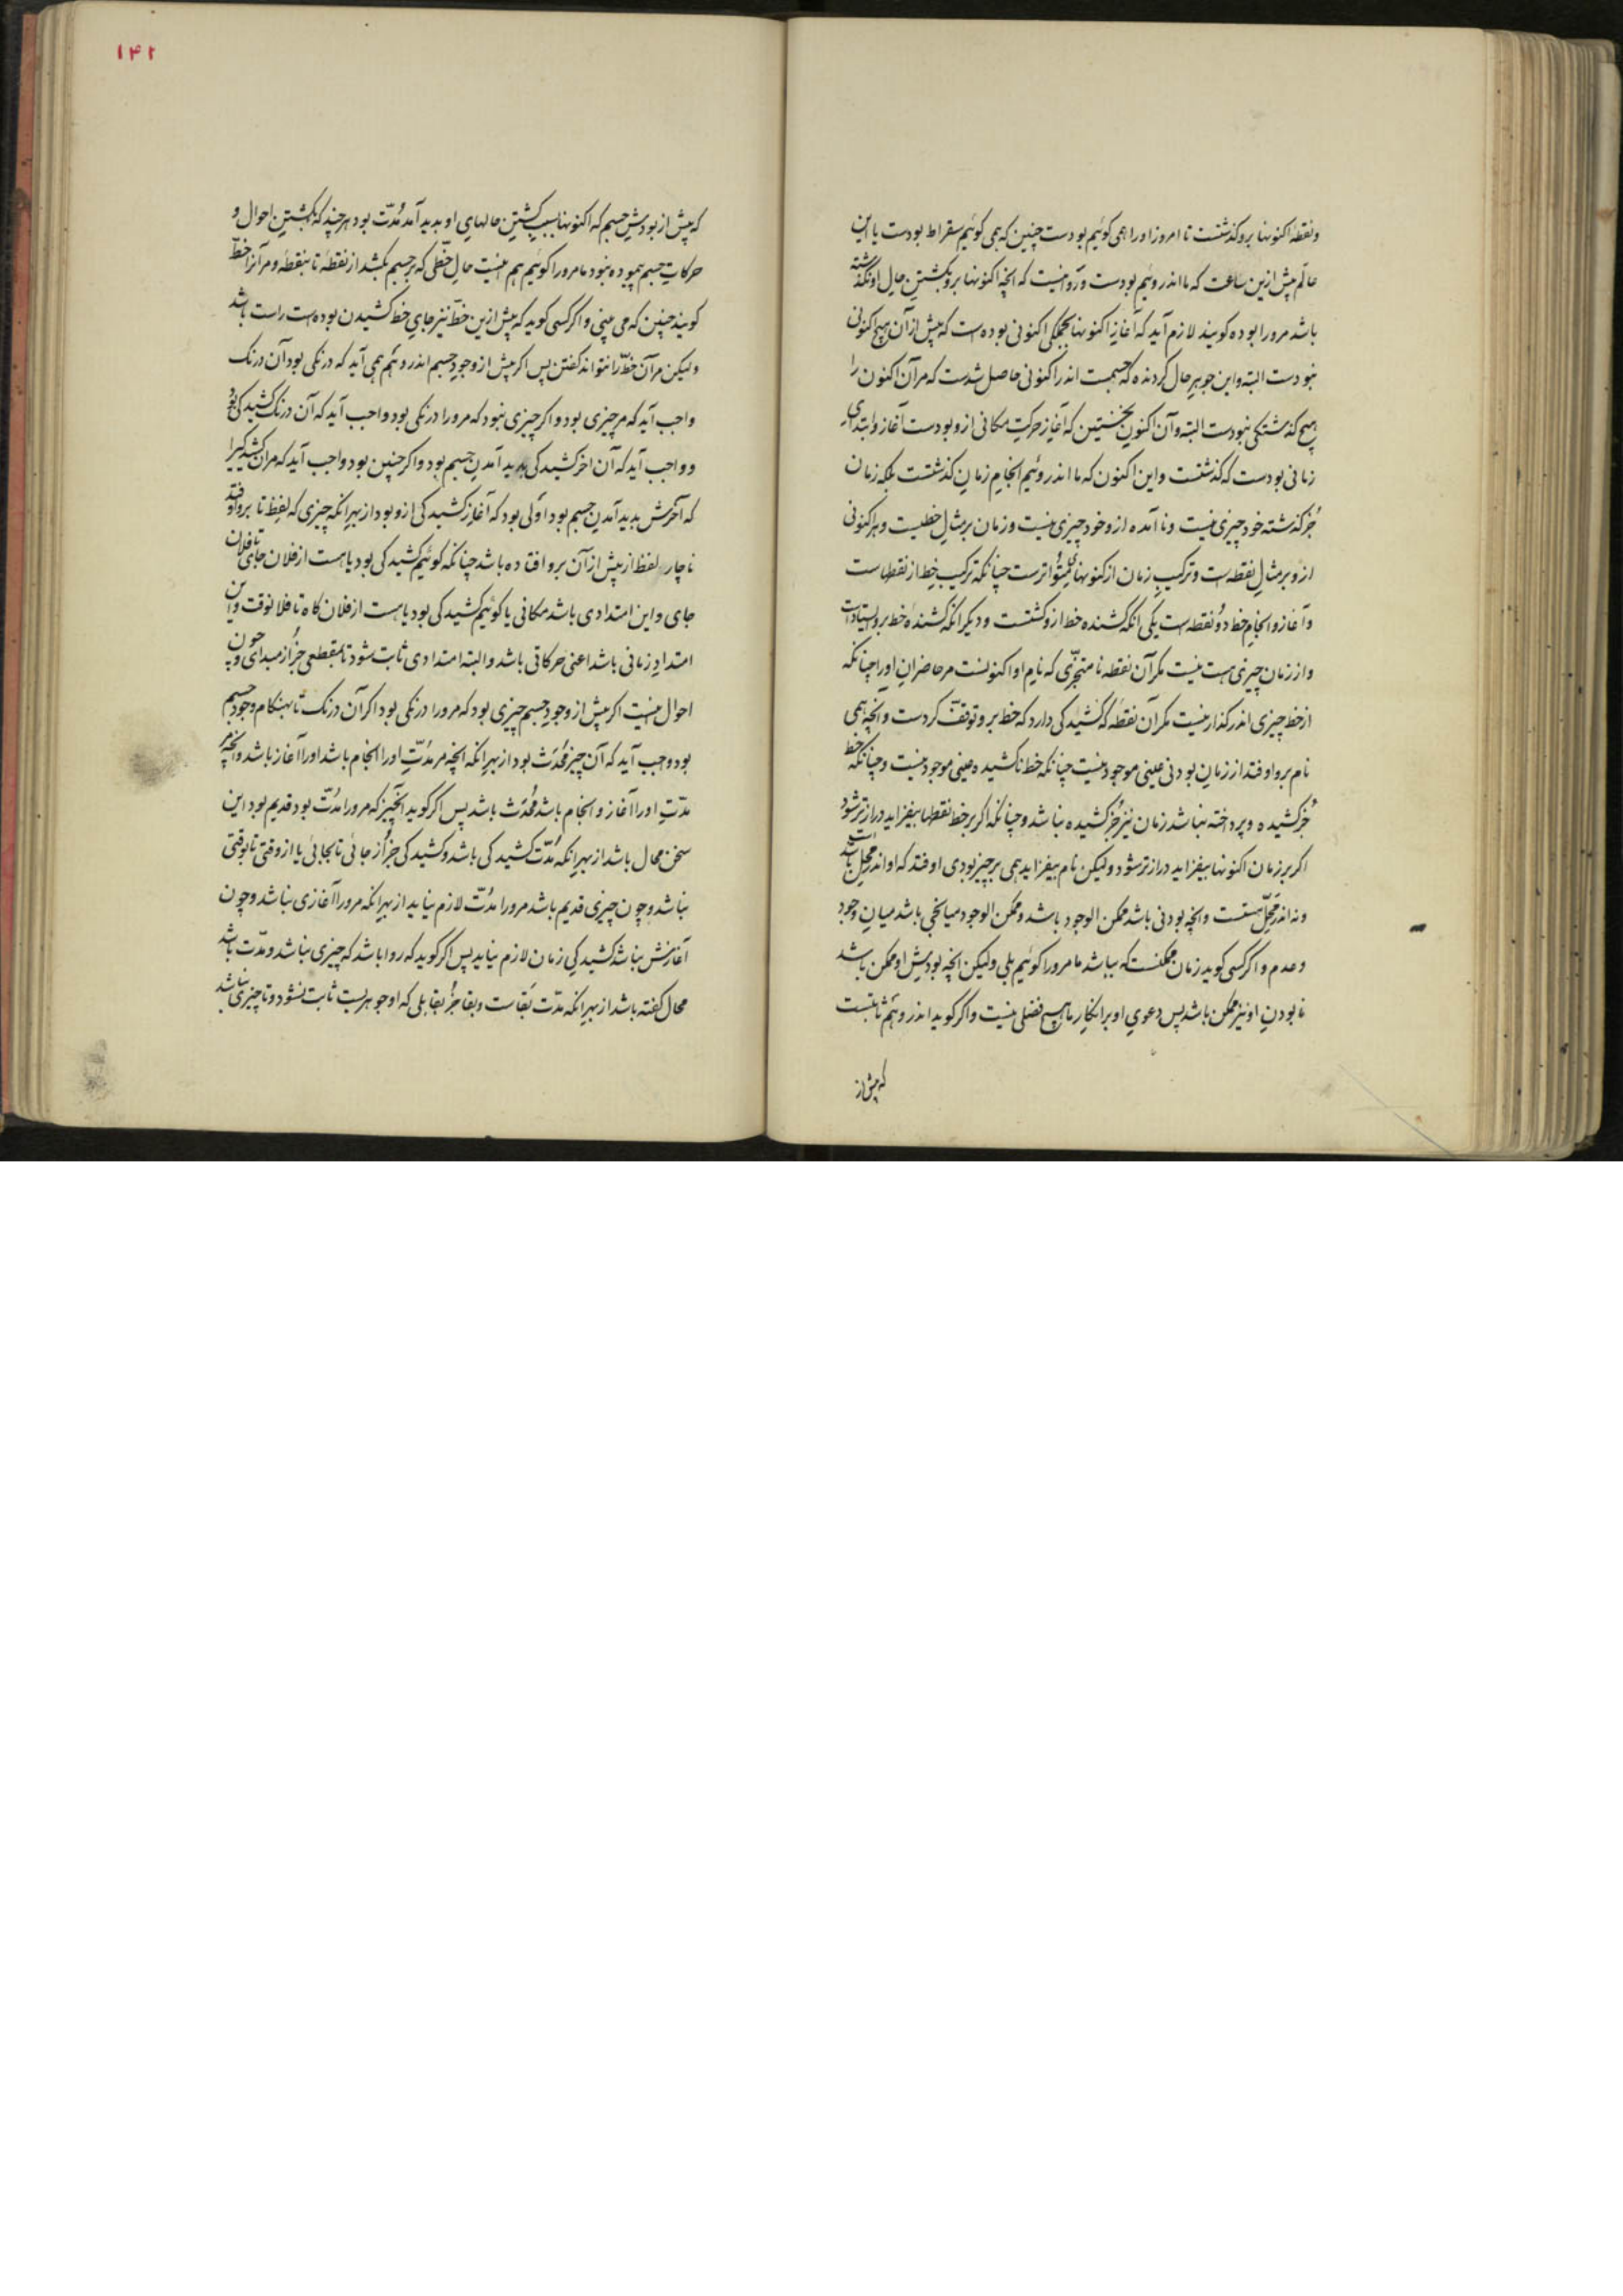 ونقطهٔ اکنونها بروکذشتست تا امروز اورا همی کوئیم بودست چنین که همی کوئیم سقراط بودست یا این
عالم پیش ازین ساعت که ما اندروئیم بودست وروا نیست که انچه اکنونها برو بکشتن حال او نکذشته
باشد مرورا بوده کویند لازم آید که آغاز اکنونها بجملکی اکنونی بوده است که پیش از آن هیچ کنونی
نبودست البته واین جوهر حال کردنده که جسمست اندر اکنونی حاصل شدست که مر آن اکنون را
هیچ کذشتکی نبودست البته وآن اکنون نخستین که آغاز حرکت مکانی ازو بودست آغاز وابتدای
زمانی بودست که کذشتست واین اکنون که ما اندروئیم انجام زمان کذشتست بلکه زمان
جز کذشته خود چیزی نیست ونا آمده ازو خود چیزی نیست وزمان بر مثال خطیست وهر اکنونی
ازو بر مثال نقطه است وترکیب زمان از کنونهای متواترست چنانکه ترکیب خط از نقطهاست
وآغاز وانجام خط دو نقطه است یکی انکه کشنده خط ازو کشتست ودیکر انکه کشندهٔ خط برو بستادست
واز زمان چیزی هست نیست مکر آن نقطه نا متجزی که نام او اکنونست مر حاضران اورا چنانکه
از خط چیزی اندر کذار نیست مکر آن نقطه که کشیدکی دارد که خط برو توقف کردست وانچه همی
نام برو اوفتد از زمان بودنی عینی موجود نیست چنانکه خط ناکشیده عینی موجود نیست وچنانکه خط
جز کشیده وپرداخته نباشد زمان نیز جز کشیده نباشد وچنانکه اکر بر خط نقطها بیفزاید درازتر شود
اکر بر زمان اکنونها بیفزاید درازتر شود ولیکن نام بیفزاید همی بر چیز بودی اوفتد که او اندر محل باشد
ونه اندر محل هستست وانچه بودنی باشد ممکن الوجود باشد وممکن الوجود میانجی باشد میان وجود
وعدم واکر کسی کوید زمان ممکنست که بباشد ما مرورا کوئیم بلی ولیکن انچه بودش او ممکن باشد
نا بودن او نیز ممکن باشد پس دعوی او بر انکار ما هیچ فضلی نیست واکر کوید اندر وهم ثابتست
که پیش از
۱۴۲
که پیش از بودش جسم که اکنونها بسبب کشتن حالهای او بدید آمد مدت بود هرچند که بکشتن احوال و
حرکات جسم پیموده نبود ما مرورا کوئیم هم اینست حال خطی که بر جسم بکشد از نقطهٔ تا بنقطهٔ ومر آنرا خط
کویند چنین که می بینی واکر کسی کوید که پیش ازین خط نیز جای خط کشیدن بوده است راست باشد
ولیکن مر آن خط را نتواند کفتن پس اکر پیش از وجود جسم اندر وهم همی آید که درنکی بود آن درنک
واجب آید که مر چیزی بود واکر چیزی نبود که مرورا درنکی بود واجب آید که آن درنک کشیدکی بود
وواجب آید که آن اخر کشیدکی بدید آمدن جسم بود واکر چنین بود واجب آید که مر آن کشیدکی را
که آخرش بدید آمدن جسم بود اولی بود که آغاز کشیدکی ازو بود از بهر انکه چیزی که لفظ تا برو اوفتد
ناچار لفظ از پیش از آن برو افتاده باشد چنانکه کوئیم کشیدکی بود یا هست از فلان جای تا فلان
جای واین امتدادی باشد مکانی یا کوئیم کشیدکی بود یا هست از فلان کاه تا فلانوقت واین
امتداد زمانی باشد اعنی حرکاتی باشد والبته امتدادی ثابت شود تا بمقطعی جز از مبدائی وچون
احوال اینست اکر پیش از وجود جسم چیزی بود که مرورا درنکی بود اکر آن درنک تا بهنکام وجود جسم
بود وجب آید که آن چیز محدث بود از بهر انکه انچه مر مدت اورا انجام باشد اورا آغاز باشد وانچه مر
مدت اورا آغاز وانجام باشد محدث باشد پس اکر کوید آنچیز که مرورا مدت بود قدیم بود این
سخن محال باشد از بهر انکه مدت کشیدکی باشد وکشیدکی جز از جائی تا بجائی یا از وقتی تا بوقتی
نباشد وچون چیزی قدیم باشد مرورا مدت لازم نیاید از بهر انکه مرورا آغازی نباشد وچون
آغازش نباشد کشیدکی زمان لازم نیاید پس اکر کوید که روا باشد که چیزی نباشد ومدت باشد
محال کفته باشد از بهر انکه مدت بقاست وبقا جز بقا بلی که او جوهریست ثابت نشود وتا چیزی نباشد